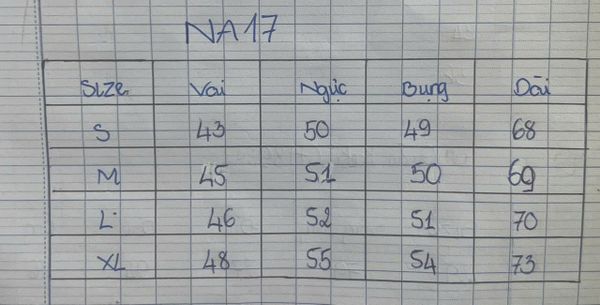 NA17
Size Vai Ngực Bụng Dài
S 43 50 49 68
M 45 51 50 69
L 46 52 51 70
XL 48 55 54 73